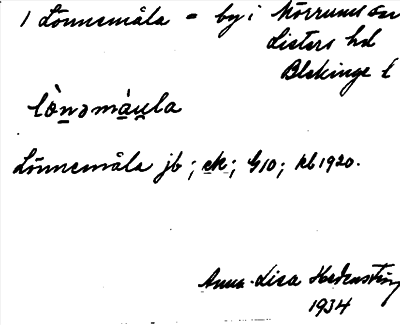 1 Lönnemåla = by i Mörrums sn
Listers hd
Blekinge l
lònəmàu̯la
Lönnemåla jb; ek; G10; kb 1920.
Anna-Lisa
1934